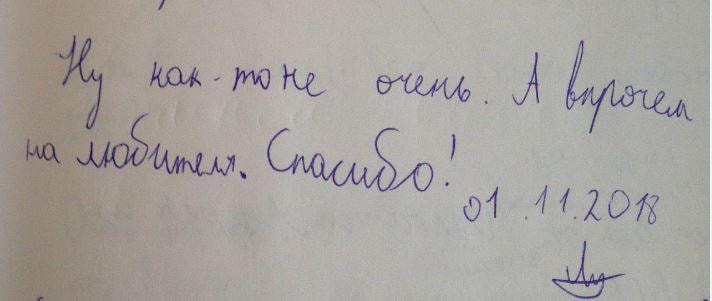 Ну как-то не очень. А впрочем
на любителя. Спасибо!
01.11.2018